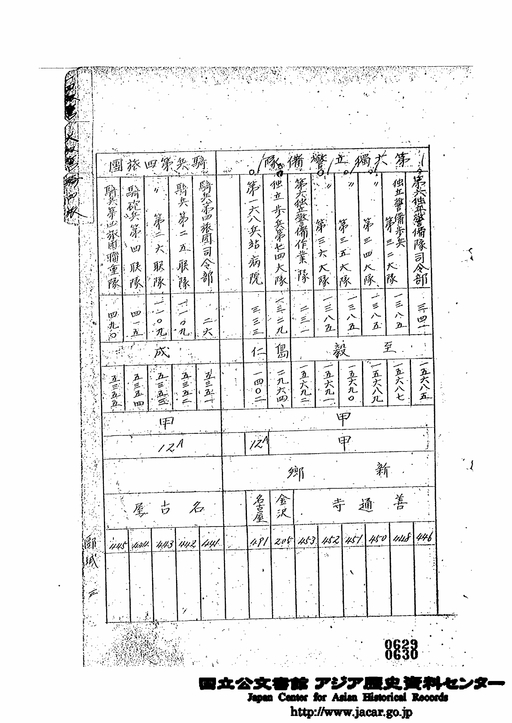 第六独立警備隊
第六独立警備隊司令部 三四一 至毅 一五六八五 甲 甲 新郷 善通寺 446
独立警備歩兵第三二大隊 一三八五 一五六八七 448
〃 第三四大隊 一三八五 一五六八九 450
〃 第三五大隊 一三八五 一五六九〇 451
〃 第三六大隊 一三八五 一五六九一 452
第六独立警備作業隊 二三一 一五六九二 453
独立歩兵第七四大隊 一三二九 島 二九六四 金沢 205
第一六八兵站病院 三三三 仁 一四〇二 12A 名古屋 491
騎兵第四旅団
騎兵第四旅団司令部 二六 成 五三五一 甲 12A 名古屋 441
騎兵第二五联隊 一一〇九 五三五二 442
〃 第二六联隊 一一〇九 五三五三 443
騎砲兵第四联隊 四一五 五三五四 444
騎兵第四旅団輜重隊 四九〇 五三五五 445
0629
0630
国立公文書館 アジア歴史資料センター
Japan Center for Asian Historical Records
http://www.jacar.go.jp